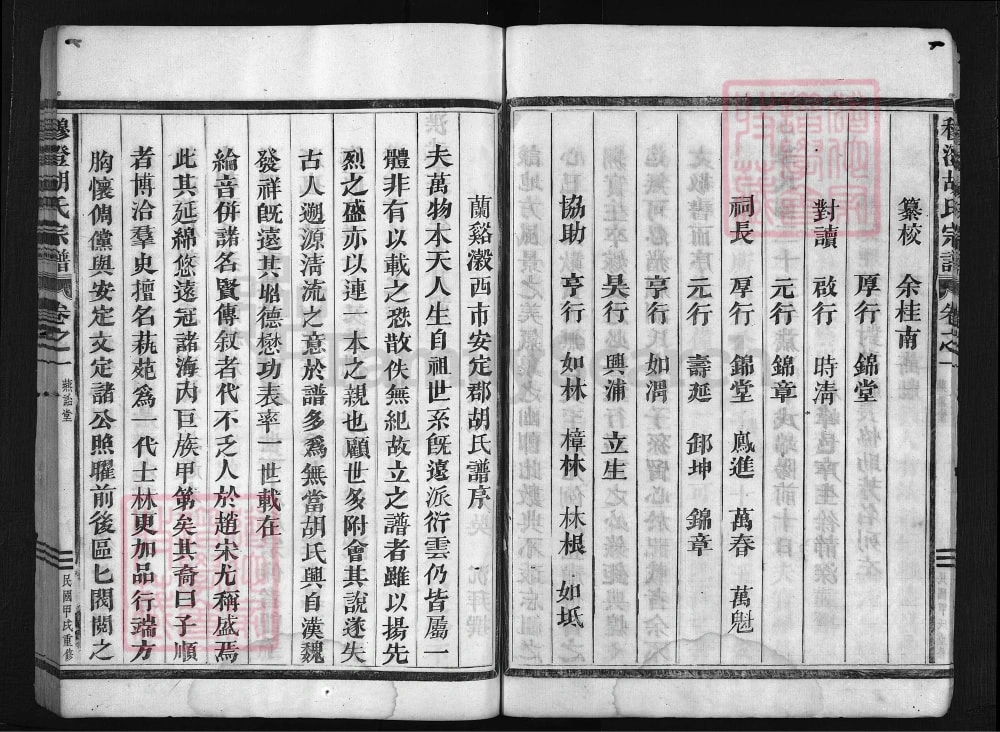 穆澄胡氏宗譜
纂校 余桂南
厚行 錦堂
對讀 啟行 時清
元行 錦章
祠長 厚行 錦堂 鳳進 萬春 萬魁
元行 壽延 卸坤 錦章
亨行 如渭
昊行 必興 浦 立生
協助 亨行 如林 樟林 林根 如坻
蘭谿瀫西市安定郡胡氏譜序
夫萬物本天人生自祖世系旣遠派衍雲仍皆屬一
體非有以載之恐散佚無紀故立之譜者雖以揚先
烈之盛亦以連一本之親也顧世多附會其說遂失
古人遡源淸流之意於譜多爲無當胡氏興自漢魏
發祥旣遠其昭德懋功表率一世載在
綸音併諸名賢傳叙者代不乏人於趙宋尤稱盛焉
此其延綿悠遠冠諸海內巨族甲第矣其裔曰子順
者博洽羣史擅名萟苑爲一代士林更加品行端方
胸懷倜儻與安定文定諸公照曜前後區匕閥閱之
穆澄胡氏宗譜 卷之一 燕詒堂 民國甲戌重修